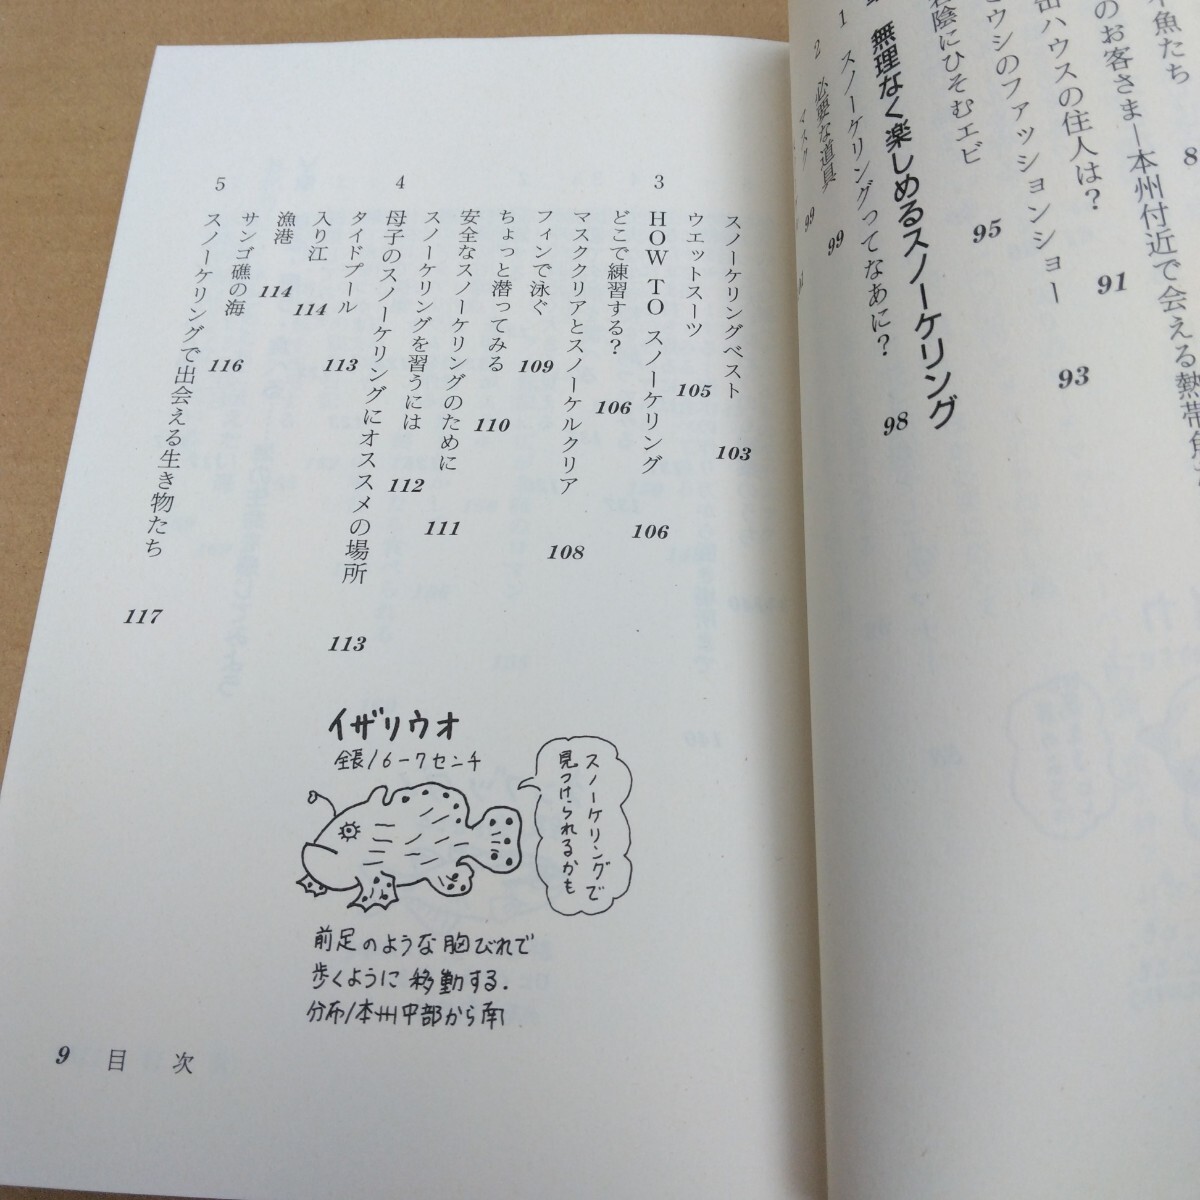 魚たち
8
のお客さま—本州付近で会える熱帯魚
91
ハウスの住人は?
93
ウシのファッションショー
岩陰にひそむエビ
95
無理なく楽しめるスノーケリング
98
1 スノーケリングってなあに?
99
2 必要な道具
99
マスク
スノーケリングベスト
103
ウエットスーツ
105
3 HOW TO スノーケリング
106
どこで練習する?
106
マスククリアとスノーケルクリア
108
フィンで泳ぐ
109
ちょっと潜ってみる
110
安全なスノーケリングのために
111
スノーケリングを習うには
112
4 母子のスノーケリングにオススメの場所
113
タイドプール
113
入り江
114
漁港
114
サンゴ礁の海
116
5 スノーケリングで出会える生き物たち
117
イザリウオ
全長/6-7センチ
スノーケリングで
見つけられるかも
前足のような胸びれで
歩くように移動する.
分布/本州中部から南
9 目次